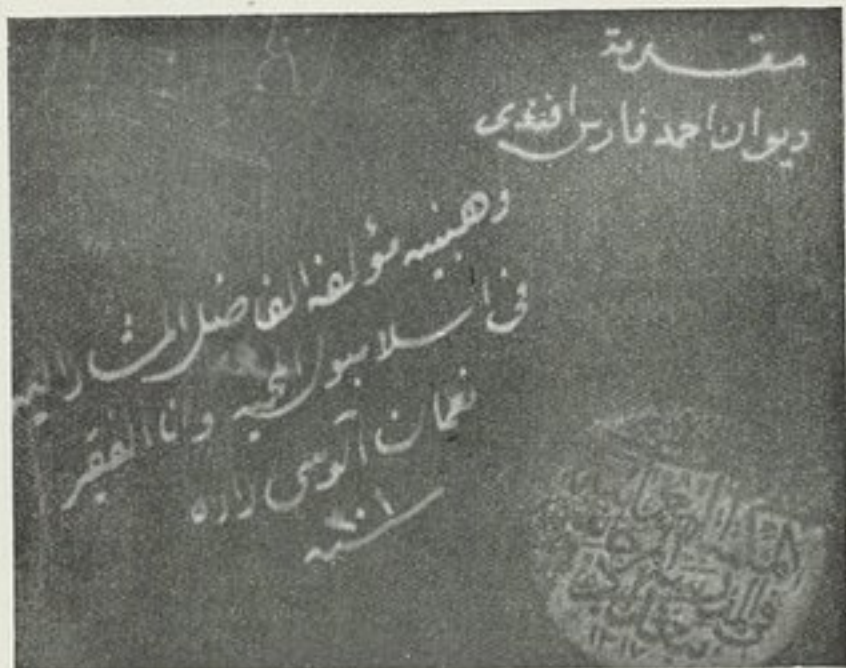 مقدمة
ديوان احمد فارس افندى
وهبنيه مؤلفه الفاضل المشار اليه
فى اسلامبول المحميه وانا الفقير
نعمان آلوسى زاده
سنه ١٣٠١
١٣١٧